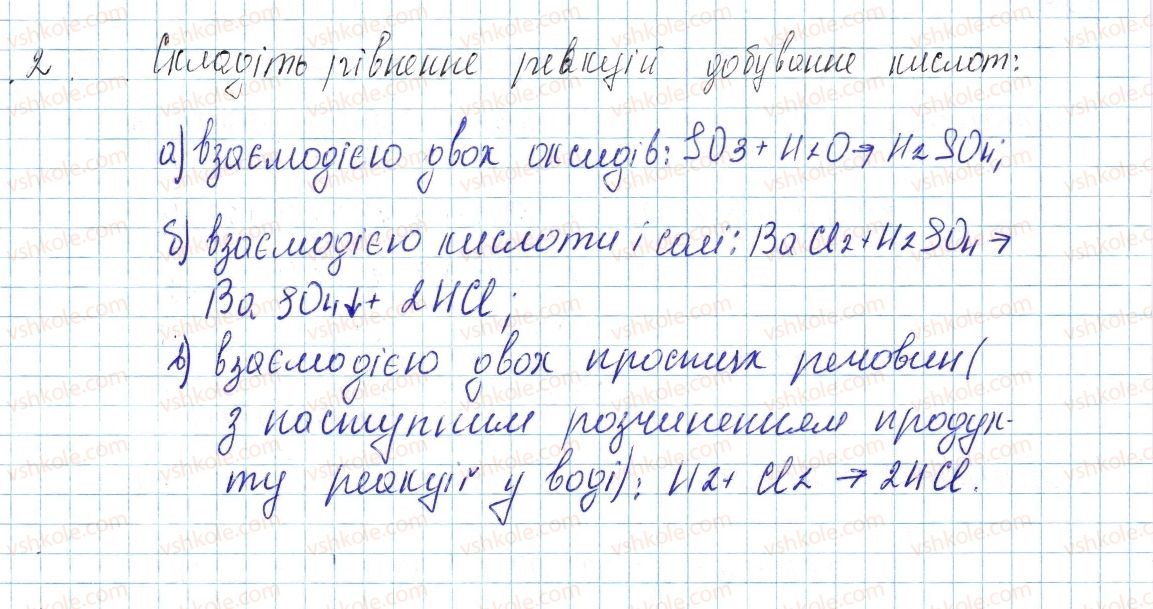 2. Складіть рівнення реакцій добування кислот:
а) взаємодією двох оксидів: SO3 + H2O → H2SO4;
б) взаємодією кислоти і солі: BaCl2 + H2SO4 →
BaSO4↓ + 2HCl;
в) взаємодією двох простих речовин (
з наступним розчиненням продук-
ту реакції у воді): H2 + Cl2 → 2HCl.